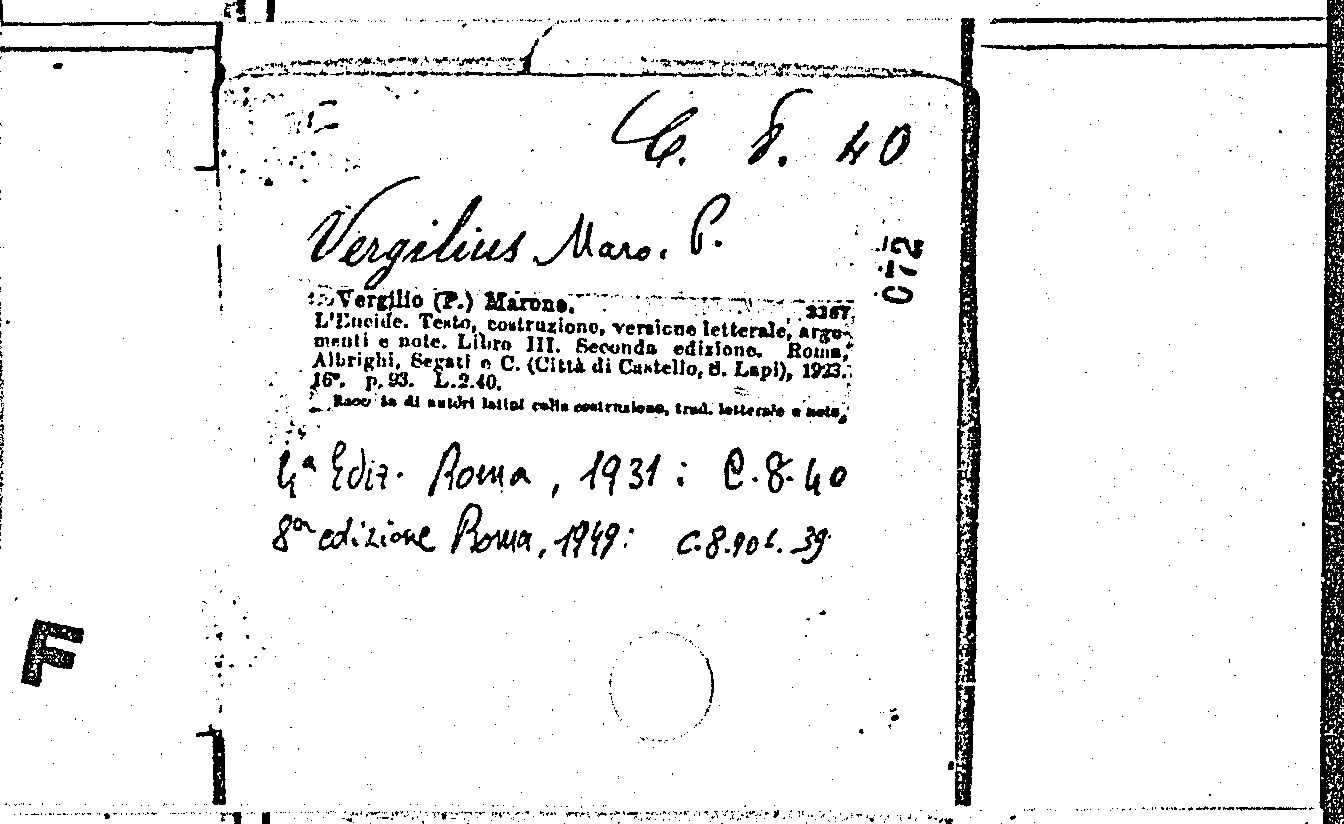 C. 8. 40
Vergilius Maro. P.
072
Vergilio (P.) Marone. 3367.
L'Eneide. Testo, costruzione, versione letterale, argo-
menti e note. Libro III. Seconda edizione. Roma,
Albrighi, Segati e C. (Città di Castello, S. Lapi), 1923.
16°. p. 93. L.2.40.
di autori latini colla costruzione, trad. letterale e note.
4ª Ediz. Roma, 1931: C.8.40
8ª edizione Roma, 1949: C.8.90 39
F